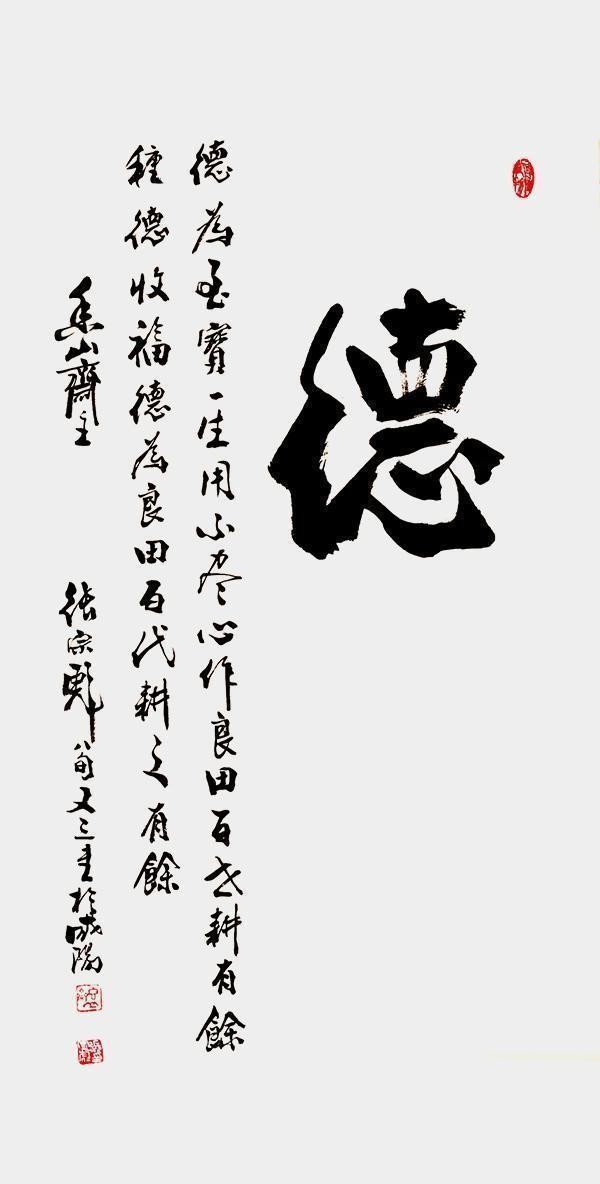 德
德為至寶一生用不尽心作良田百世耕有餘
種德收福德為良田百代耕之有餘
山齋主 張宗彪八旬又三書於咸陽